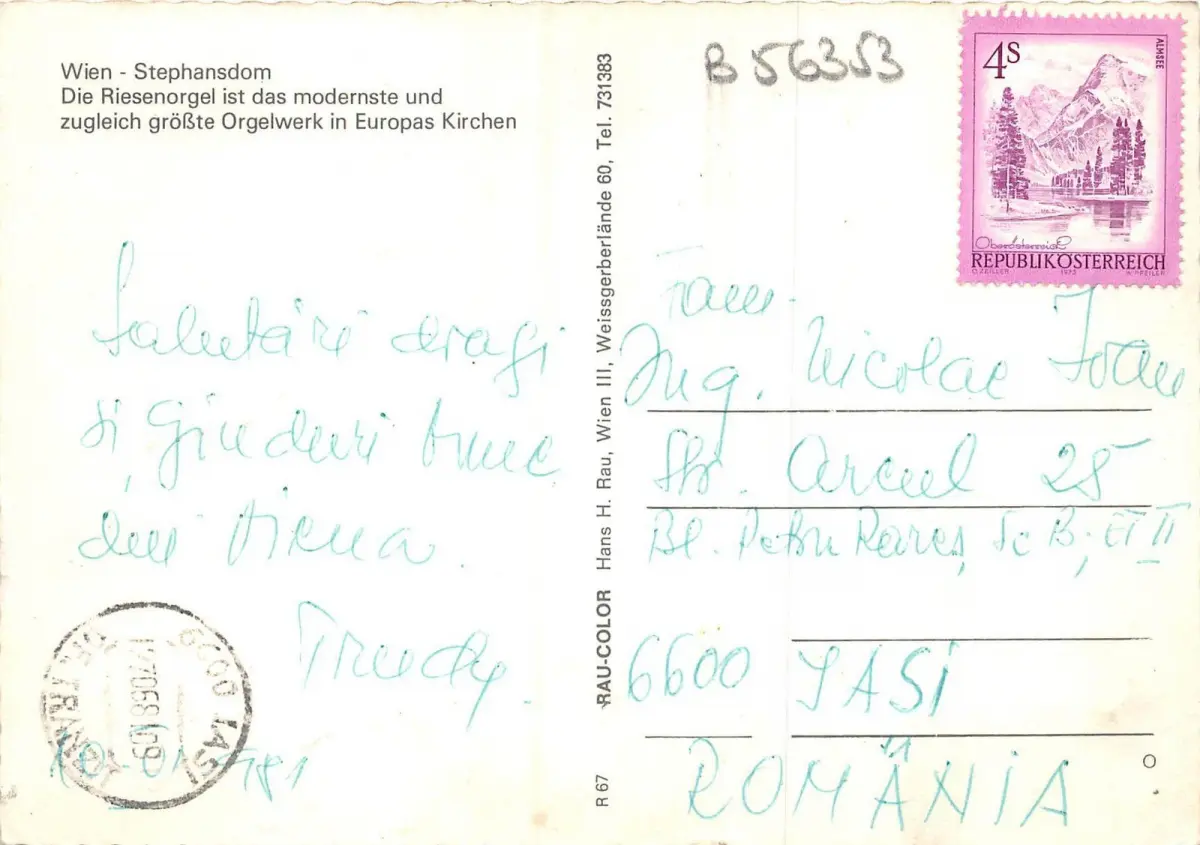 Wien - Stephansdom
Die Riesenorgel ist das modernste und
zugleich größte Orgelwerk in Europas Kirchen
B 56353
4S
ALMSEE
Oberösterreich
REPUBLIK ÖSTERREICH
O.ZEILLER 1973 A.PFEILER
Salutări dragi
și gînduri bune
din Viena
Trudy.
6600 IASI
RAU-COLOR Hans H. Rau, Wien III, Weissgerberlände 60, Tel. 731383
R 67
Fam.
Ing. Nicolae Ioan
Str. Arcul 28
Bl. Petru Rareș, Sc B, ET II
6600 IAȘI
ROMÂNIA